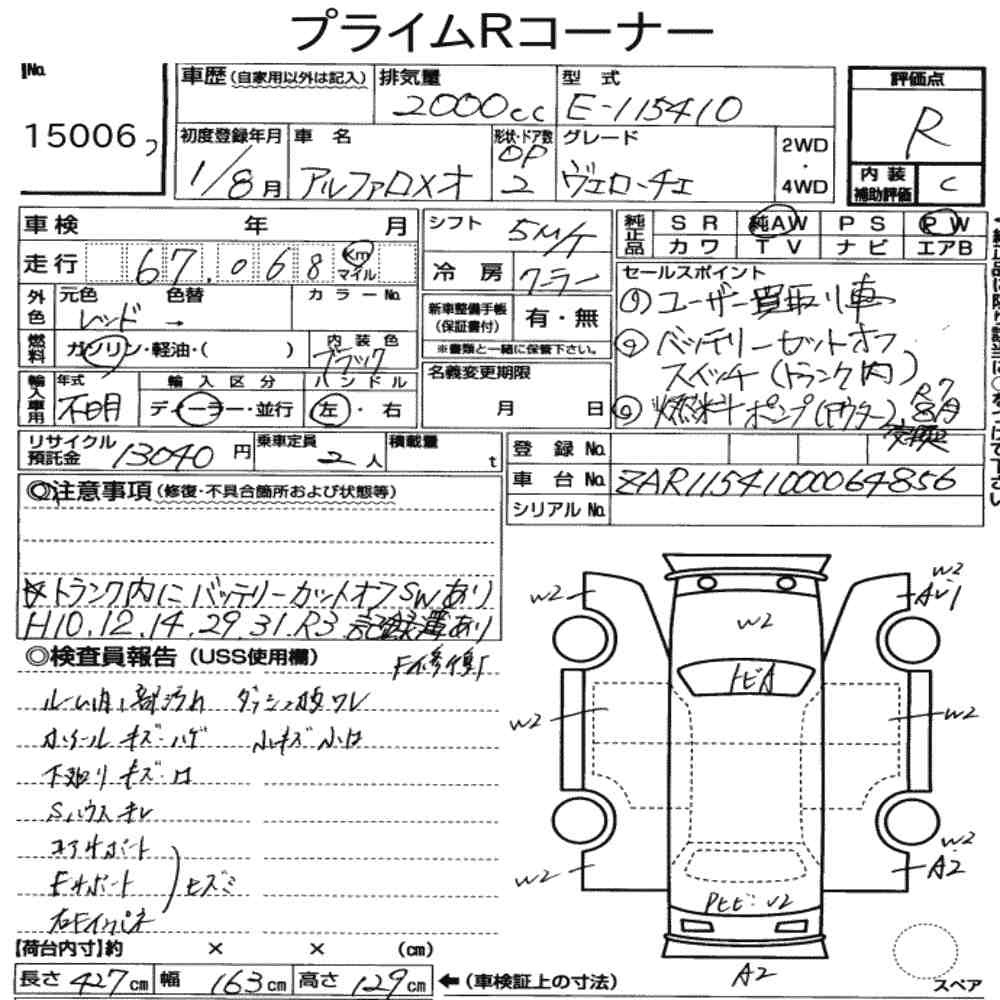 プライムRコーナー
No.
15006
車歴(自家用以外は記入) 排気量 2000cc 型式 E-115410
評価点 R
初度登録年月 1/8月 車名 アルファロメオ 形状・ドア数 OP 2 グレード ヴェローチェ 2WD・4WD
内装補助評価 C
車検 年 月
走行 67.068 Km マイル
外色 元色 レッド → 色替 カラーNo.
燃料 ガソリン・軽油・( ) 内装色 ブラック
輸入車用 年式 不明 輸入区分 ディーラー・並行 ハンドル 左・右
シフト 5M/T
冷房 クーラー
新車整備手帳(保証書付) 有・無
※書類と一緒に保管下さい。
名義変更期限
月 日
純正品 SR 純AW PS PW
カワ TV ナビ エアB
セールスポイント
ユーザー買取り車
バッテリーセットオフ
スイッチ(トランク内)
燃料ポンプ(アウター) R7 8月
交換
リサイクル預託金 13040円 乗車定員 2人 積載量 t
登録No.
車台No. ZAR11541000064856
シリアルNo.
◎注意事項(修復・不具合箇所および状態等)
☆トランク内にバッテリーカットオフSWあり
H10.12.14.29.31.R3 記録簿あり
◎検査員報告(USS使用欄) F修復
ルーム内一部汚れ ダッシュ板ワレ
ホイールキズ・ハゲ 小キズ小凹
下廻りキズ・凹
Sハウスキレ
コアサポート
Fサポート ヒズミ
右Fインパネ
【荷台内寸】約 × × (cm)
長さ 427cm 幅 163cm 高さ 129cm ←(車検証上の寸法)
W2
W2
AW1
W2
トビA
W2
W2
W2
W2
A2
Pヒビ・U2
A2
スペア